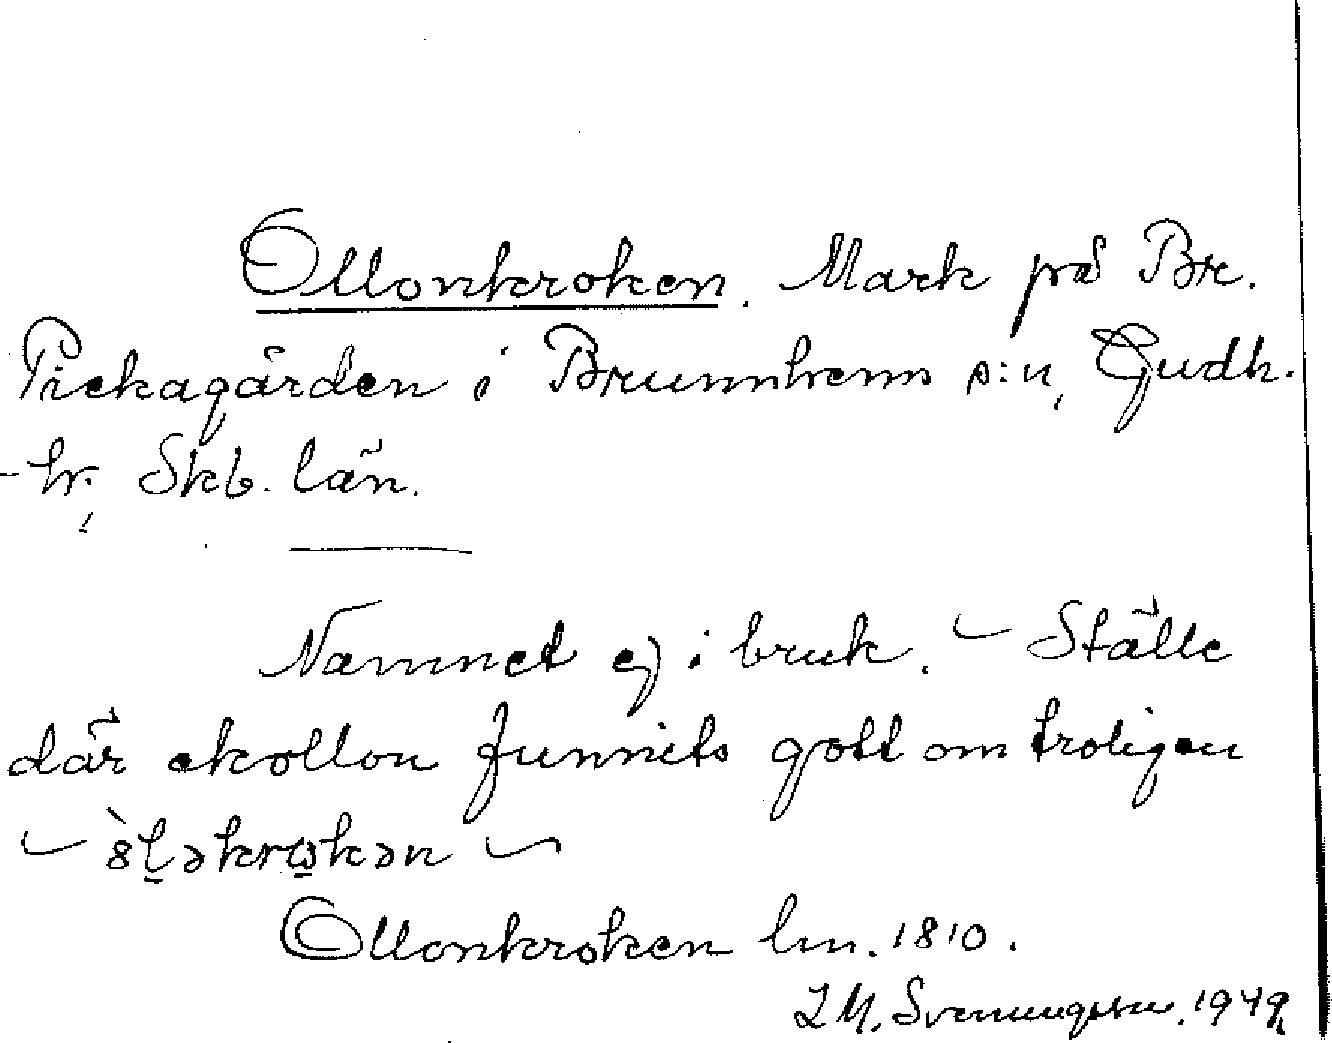 Ollonkroken. Mark på Br.
Pickagården i Brunnhems s:n, Gudh.
hr, Skb. län.
Namnet ej i bruk. – Ställe
där ekollon funnits gott om troligen
– ȣ̀l̠əkrω̠kən –
Ollonkroken lm. 1810.
I M. Svenungsson. 1949